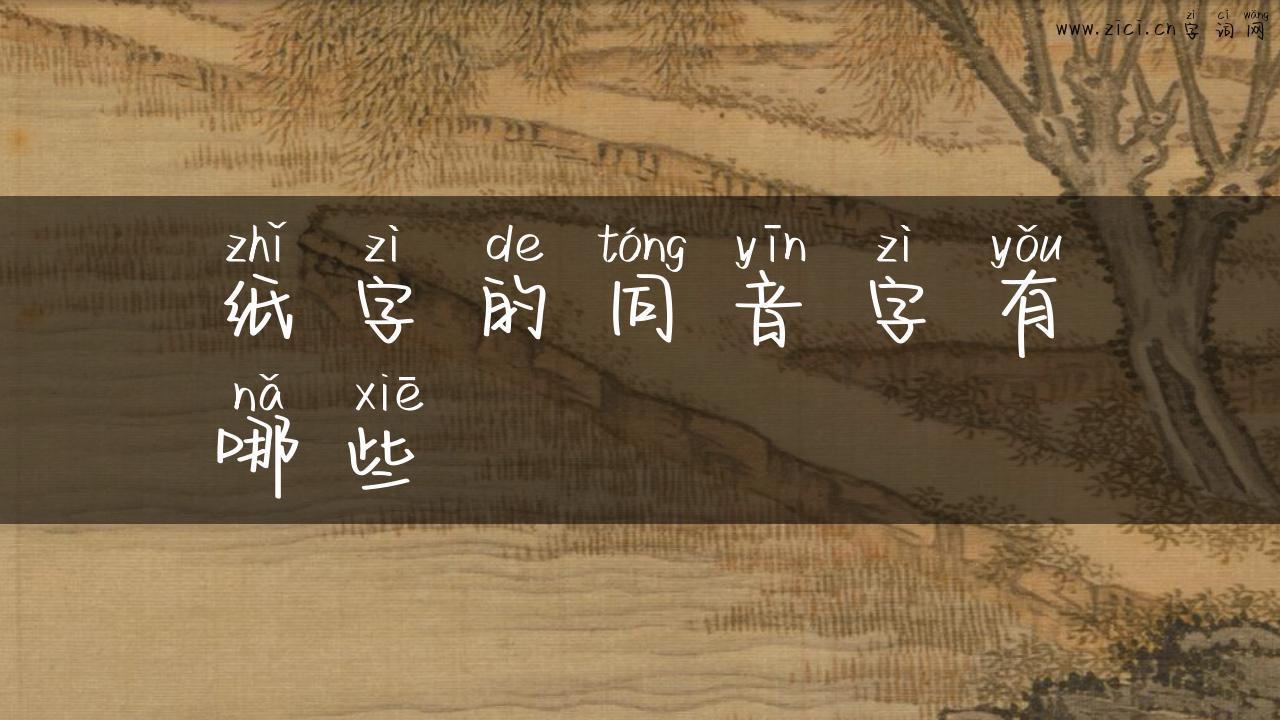 zì cí wǎng
www.zici.cn字词网
zhǐ zì de tóng yīn zì yǒu
纸字的同音字有
nǎ xiē
哪些